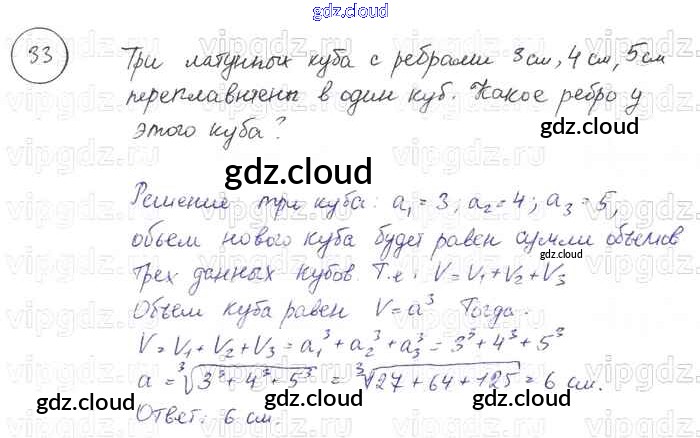 gdz.cloud
33
Три латунных куба с ребрами 3 см, 4 см, 5 см
переплавлены в один куб. Какое ребро у
этого куба?
gdz.cloud
Решение три куба: a₁ = 3; a₂ = 4; a₃ = 5,
объем нового куба будет равен сумме объемов
трех данных кубов. Т.е. V = V₁ + V₂ + V₃
gdz.cloud
Объем куба равен V = a³ Тогда.
V = V₁ + V₂ + V₃ = a₁³ + a₂³ + a₃³ = 3³ + 4³ + 5³
a = ∛(3³ + 4³ + 5³) = ∛(27 + 64 + 125) = 6 см.
gdz.cloud
gdz.cloud
Ответ: 6 см.